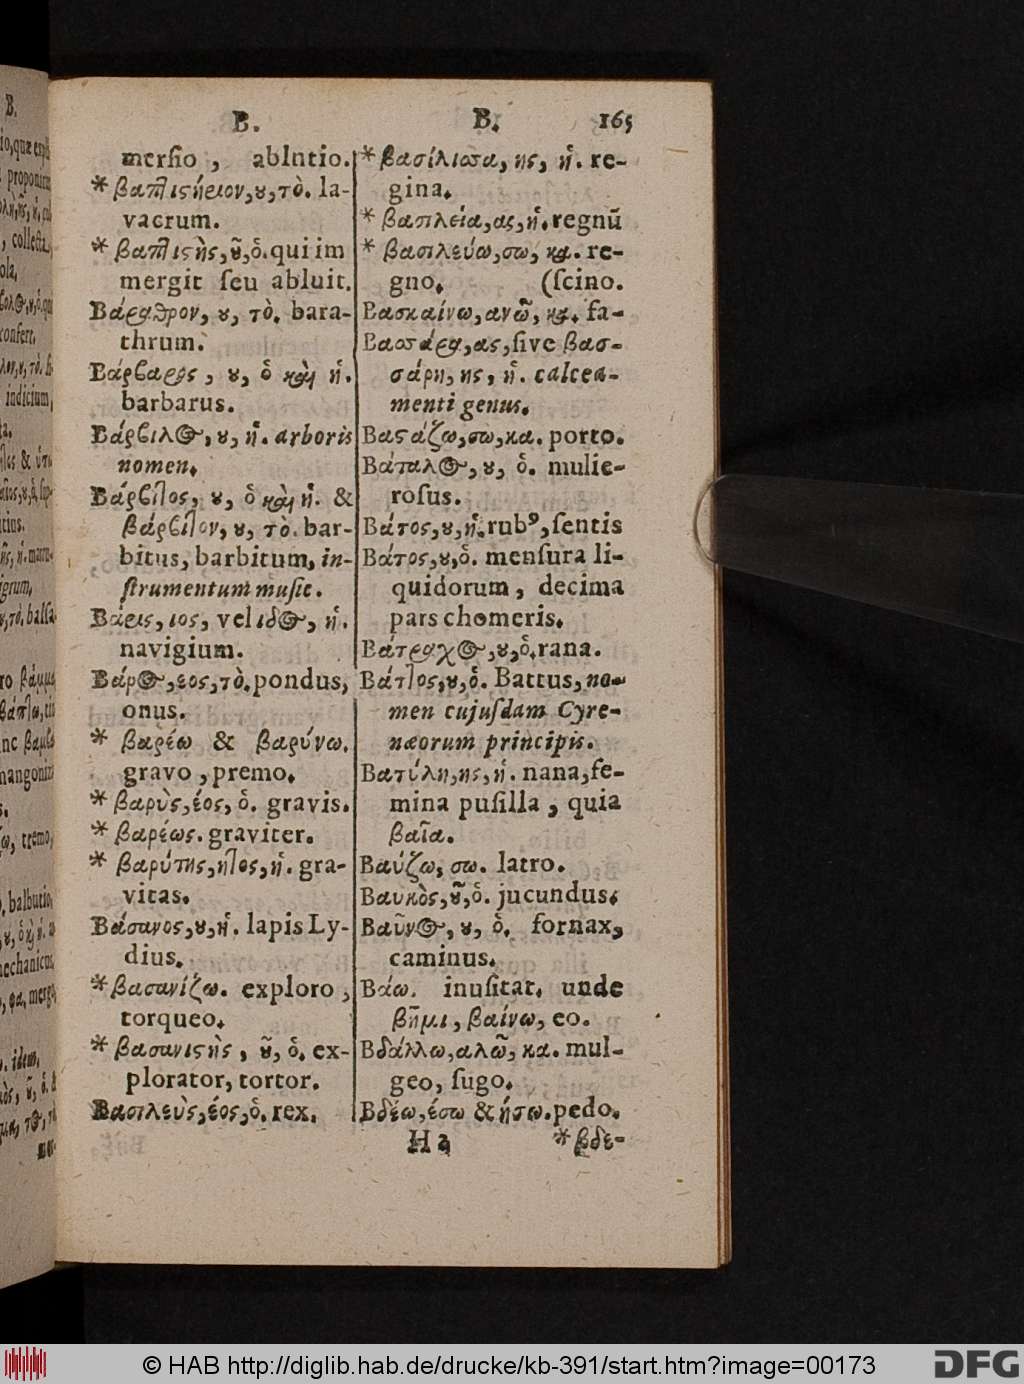 B. B. 165
mersio, ablutio.
* βαπτιστήριον, ου, τὸ. la-
vacrum.
* βαπτιστὴς, οῦ, ὁ. qui im
mergit seu abluit.
Βάραθρον, ου, τὸ. bara-
thrum.
Βάρβαρος, ου, ὁ καὶ ἡ.
barbarus.
Βάρβιλος, ου, ἡ. arboris
nomen.
Βάρβιτος, ου, ὁ καὶ ἡ. &
βάρβιτον, ου, τὸ. bar-
bitus, barbitum, in-
strumentum music.
Βάρις, ιος, vel ιδος, ἡ.
navigium.
Βάρος, εος, τὸ. pondus,
onus.
* βαρέω & βαρύνω.
gravo, premo.
* βαρὺς, έος, ὁ. gravis.
* βαρέως. graviter.
* βαρύτης, ητος, ἡ. gra-
vitas.
Βάσανος, ου, ἡ. lapis Ly-
dius.
* βασανίζω. exploro,
torqueo.
* βασανιστὴς, οῦ, ὁ. ex-
plorator, tortor.
Βασιλεὺς, έος, ὁ. rex.
* βασίλισσα, ης, ἡ. re-
gina.
* βασιλεία, ας, ἡ. regnū
* βασιλεύω, σω, κα. re-
gno. (scino.
Βασκαίνω, ανῶ, κα. fa-
Βασσάρα, ας, sive βασ-
σάρη, ης, ἡ. calcea-
menti genus.
Βαστάζω, σω, κα. porto.
Βάταλος, ου, ὁ. mulie-
rosus.
Βάτος, ου, ἡ. rubꝰ, sentis
Βάτος, ου, ὁ. mensura li-
quidorum, decima
pars chomeris.
Βάτραχος, ου, ὁ. rana.
Βάττος, ου, ὁ. Battus, no-
men cujusdam Cyre-
næorum principis.
Βατύλη, ης, ἡ. nana, fe-
mina pusilla, quia
βαῖα.
Βαύζω, σω. latro.
Βαυκὸς, οῦ, ὁ. jucundus.
Βαῦνος, ου, ὁ. fornax,
caminus.
Βάω. inusitat. unde
βῆμι, βαίνω, eo.
Βδάλλω, αλῶ, κα. mul-
geo, sugo.
Βδέω, έσω & ήσω. pedo.
H 2 * βδε-
© HAB http://diglib.hab.de/drucke/kb-391/start.htm?image=00173
DFG